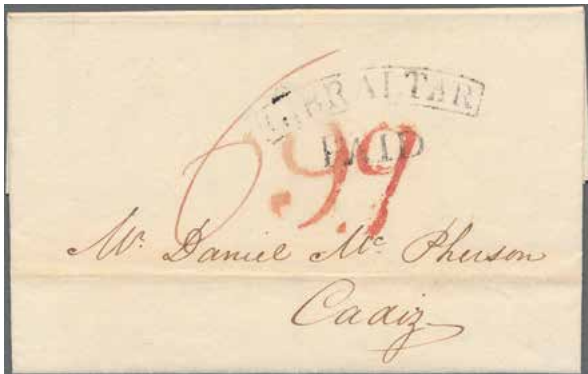 GIBRALTAR
PAID
6 99
Mr. Daniel Mc. Pherson
Cadiz